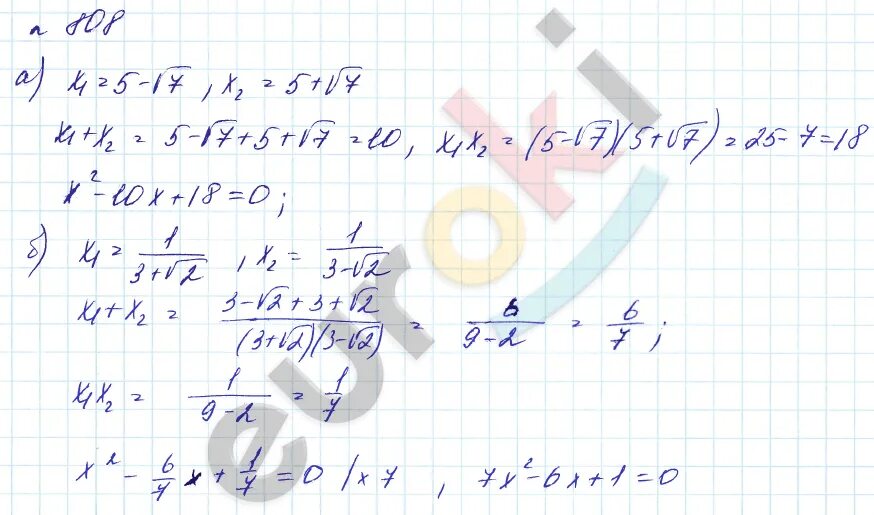 № 808
а) x₁ = 5 - √7 , x₂ = 5 + √7
x₁ + x₂ = 5 - √7 + 5 + √7 = 10, x₁x₂ = (5 - √7)(5 + √7) = 25 - 7 = 18
x² - 10x + 18 = 0;
б) x₁ = 1/(3 + √2) , x₂ = 1/(3 - √2)
x₁ + x₂ = (3 - √2 + 3 + √2)/((3 + √2)(3 - √2)) = 6/(9 - 2) = 6/7 ;
x₁x₂ = 1/(9 - 2) = 1/7
x² - 6/7 x + 1/7 = 0 | × 7 , 7x² - 6x + 1 = 0
euroki